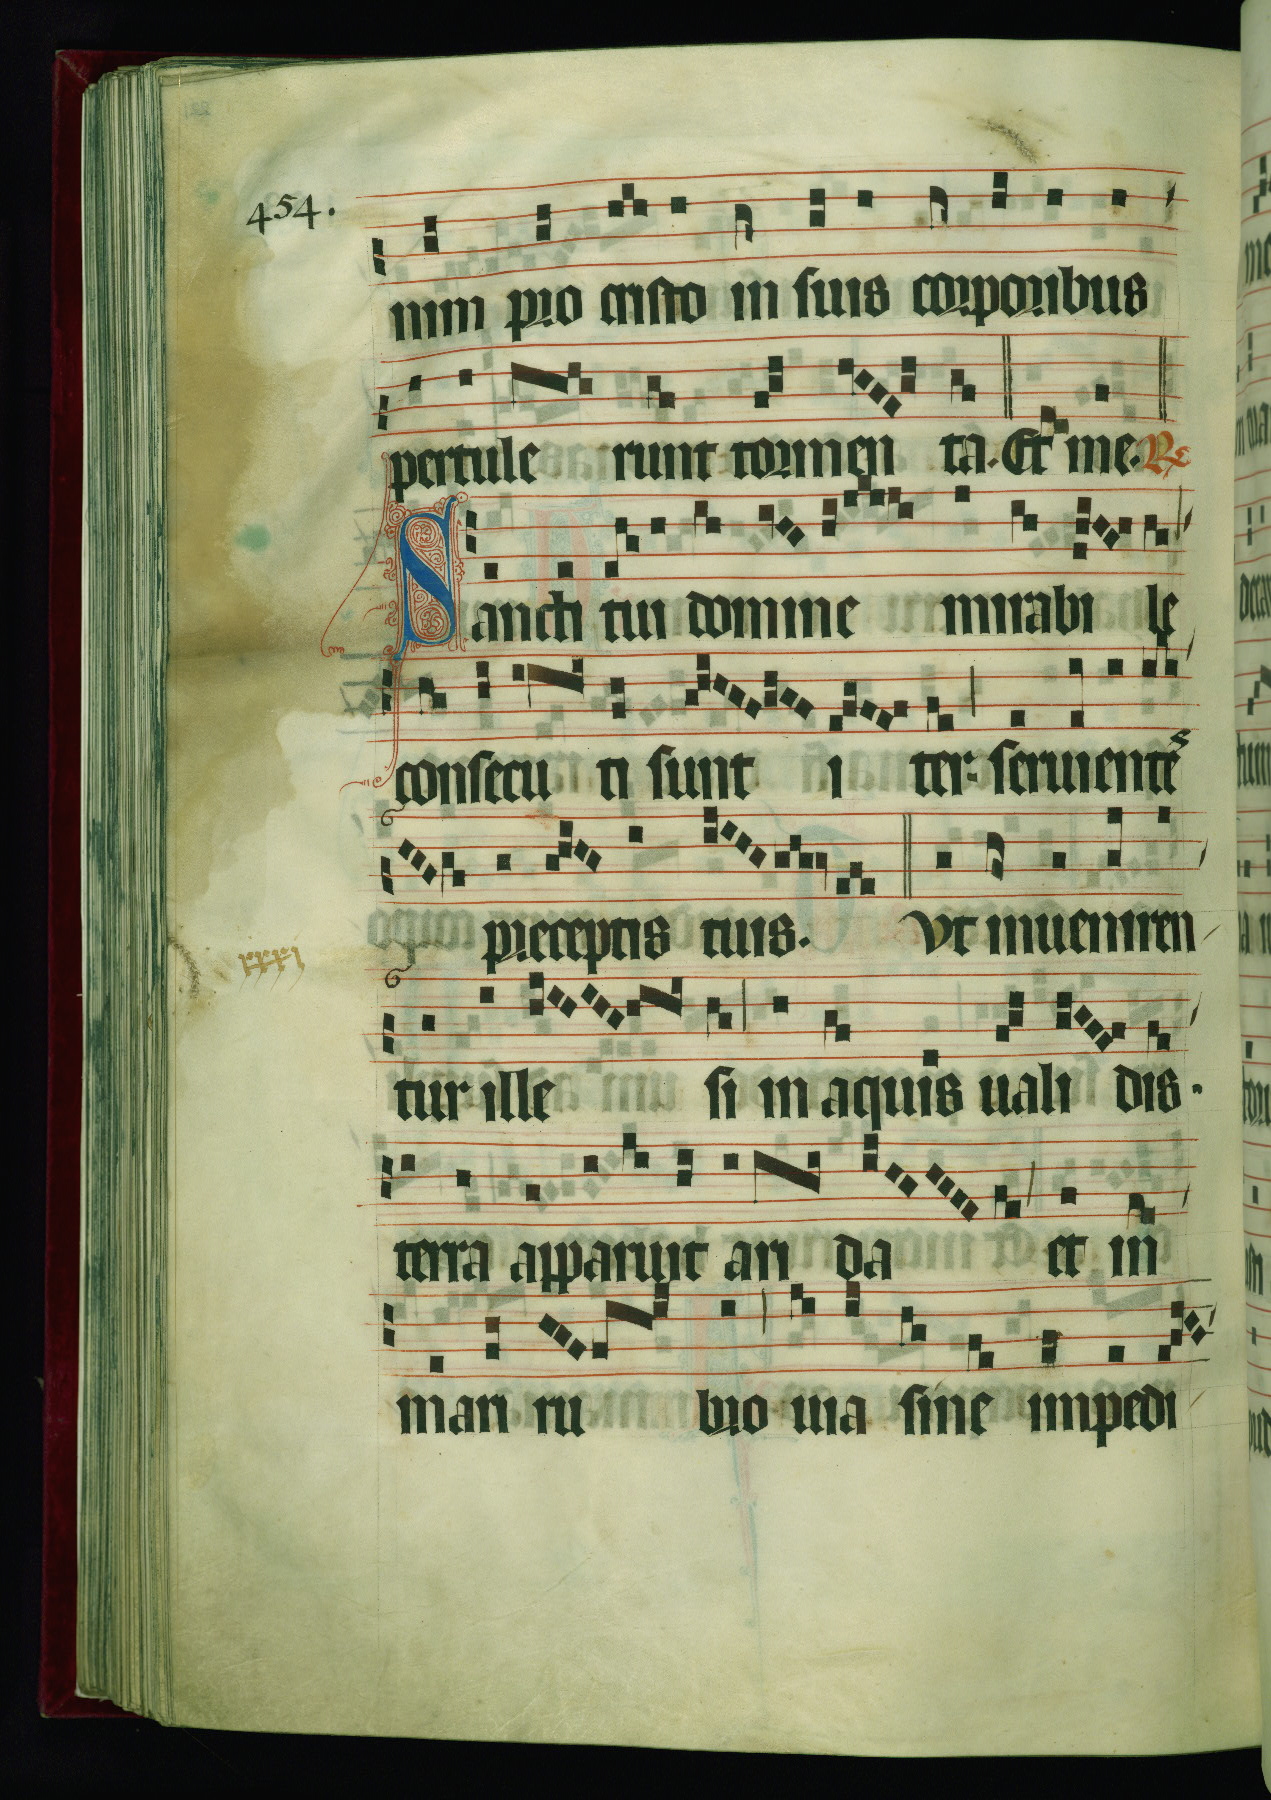 454.
nim pro cristo in suis corporibus
pertule runt tormen ta. Et me. Re
Sancti tui domine mirabi le
consecu ti sunt i ter: seruientes
preceptis tuis. Vt inueniren
tur ille si in aquis uali dis.
terra apparuit ari da et in
mari ru bro uia sine impedi